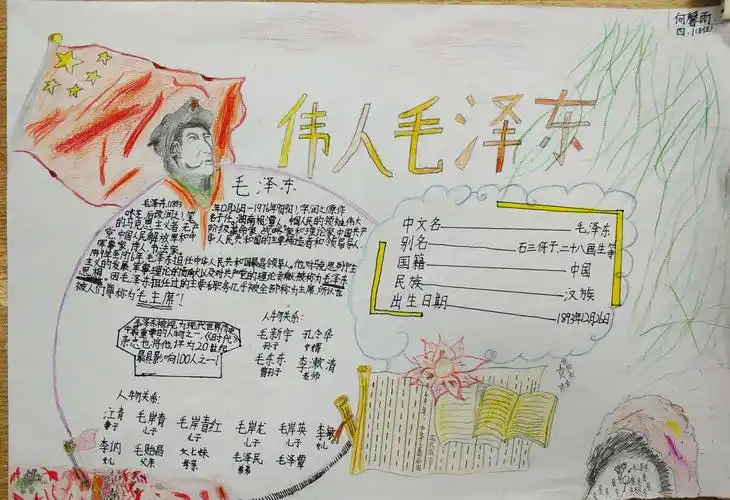 何馨雨
伟人毛泽东
毛泽东
毛泽东(1893
年12月26日-1976年9月9日),字润之(原作
咏芝,后改润之),笔
名子任。湖南湘潭人。中国人民的领袖,伟大
的马克思主义者,无产
阶级革命家、战略家和理论家,中国共产
党、中国人民解放军和中
华人民共和国的主要缔造者和领导人,
军事家,诗人,书法家。
1949年至1976年,毛泽东担任中华人民共和国最高领导人。他对马克思列宁
主义的发展、军事理论的贡献以及对共产党的理论贡献被称为毛泽东
思想。因毛泽东担任过的主要职务几乎被全部称为主席,所以也
被人们尊称为"毛主席"!
中文名 毛泽东
别名 石三伢子、二十八画生等
国籍 中国
民族 汉族
出生日期 1893年12月26日
毛泽东被视为现代世界历史
中最重要的人物之一,《时代》
杂志也将他评为20世纪
最具影响100人之一!
人物关系:
毛新宇 孔令华
孙子 女婿
毛东东 李漱清
曾孙子 老师
人物关系:
江青 毛岸青 毛岸红 毛岸龙 毛岸英 李敏
妻子 儿子 儿子 儿子 儿子 女儿
李讷 毛贻昌 文七妹 毛泽民 毛泽覃
女儿 父亲 母亲 弟弟